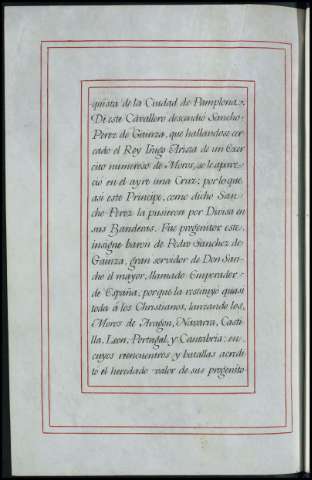 quista de la Ciudad de Pamplona.
De este Cavallero descendió Sancho
Perez de Gaurza, que hallandose cer
cado el Rey Iñigo Ariza de un Exer
cito numeroso de Moros, se le apare
ció en el ayre una Cruz; por lo que
asi este Principe, como dicho San-
che Perez la pusieron por Divisa en
sus Banderas. Fue progenitor este
insigne baron de Pedro Sanchez de
Gaurza, gran servidor de Don San-
cho il mayor, llamado Emperador
de España, porque la restituyó quasi
toda á los Christianos, lanzando los
Moros de Aragon, Navarra, Casti-
lla, Leon, Portugal, y Cantabria: en
cuyos reencuentros y batallas acredi
to el heredado valor de sus progenito